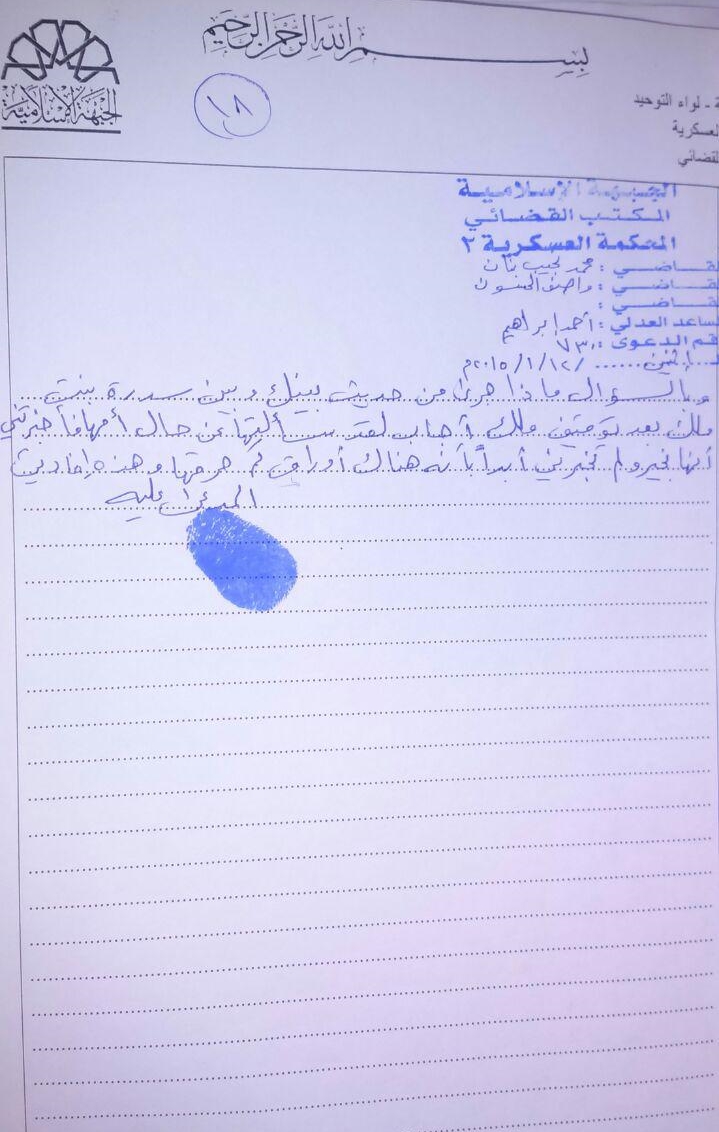 بسم الله الرحمن الرحيم
الجبهة الإسلامية
١٨
ة ـ لواء التوحيد
لعسكرية
لقضائي
الجبهة الإسلامية
المكتب القضائي
المحكمة العسكرية ٢
لقاضي : محمد نجيب بنان
لقاضي : واصف
لقاضي :
ساعد العدلي : أحمد إبراهيم
قم الدعوى : ٧٣٠
لإثنين ...... ١٢/ ١/ ٢٠١٥م
وبالسؤال ماذا جرى من حديث بينك وبين سدرة بنت
ملك بعد توقيف ملك أجاب لقد سألتها عن حال أمها فأخبرتني
أنها بخير ولم تخبرني أبداً بأنه هناك أوراق تم حرقها وهذه إفادتي
المدعى عليه